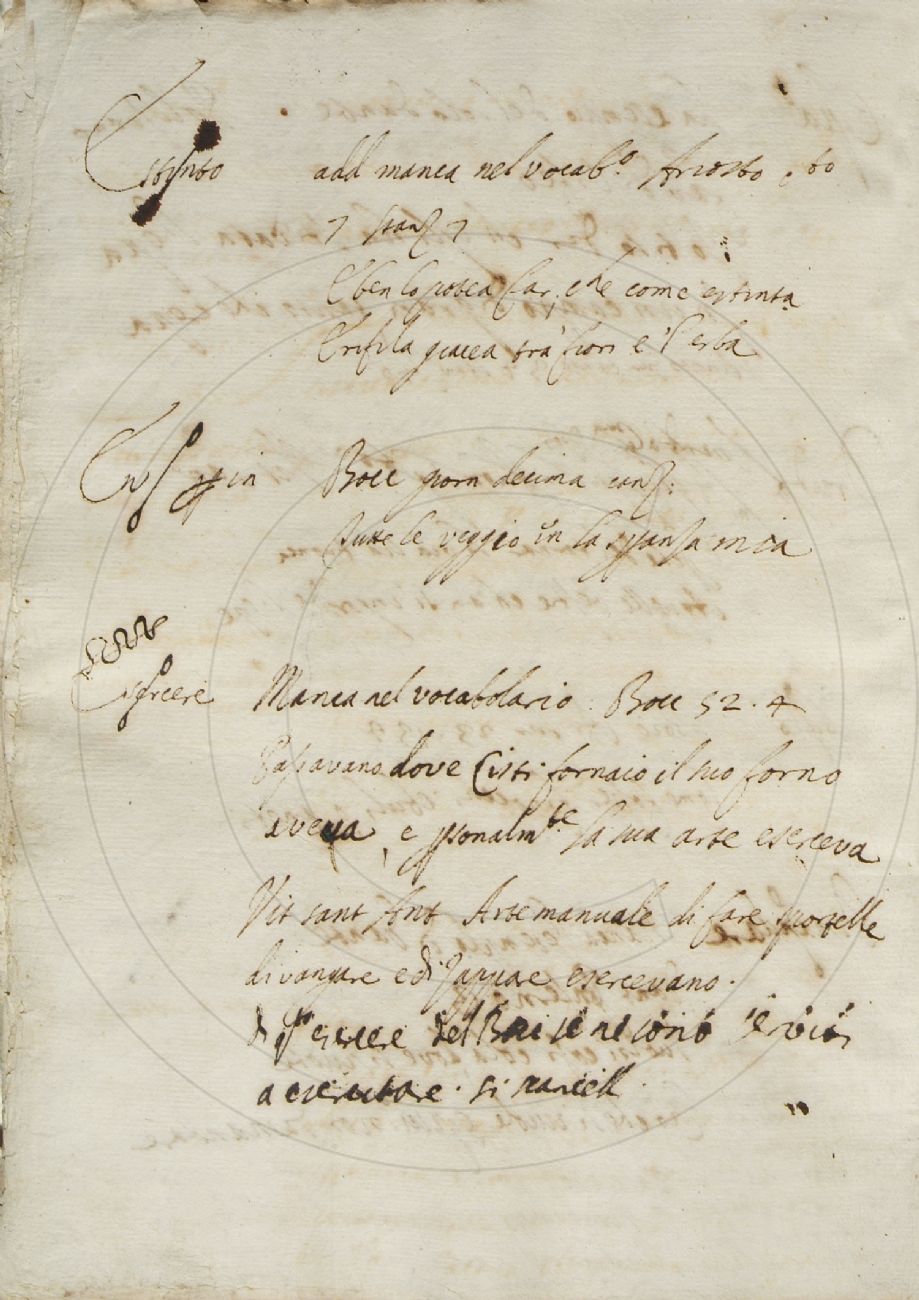 Estinto add manca nel vocab.º Ariosto cto
7 stanz 7
E ben lo potea far, che come estinta
Erifila giacea trà fiori e l'erba
Bocc giorn decima canz:
tutte le veggio in la speranza mia
esere
Esercere Manca nel vocabolario : Bocc 52. 4
Passavano dove Cisti fornaio il suo forno
aveva, e psonalmte la sua arte eserceva
Vit sant Ant Arte manuale di fare sportelle
di vangare e di zappare esercevano.
esercere del Bocc se ne sono
a esercitare. si